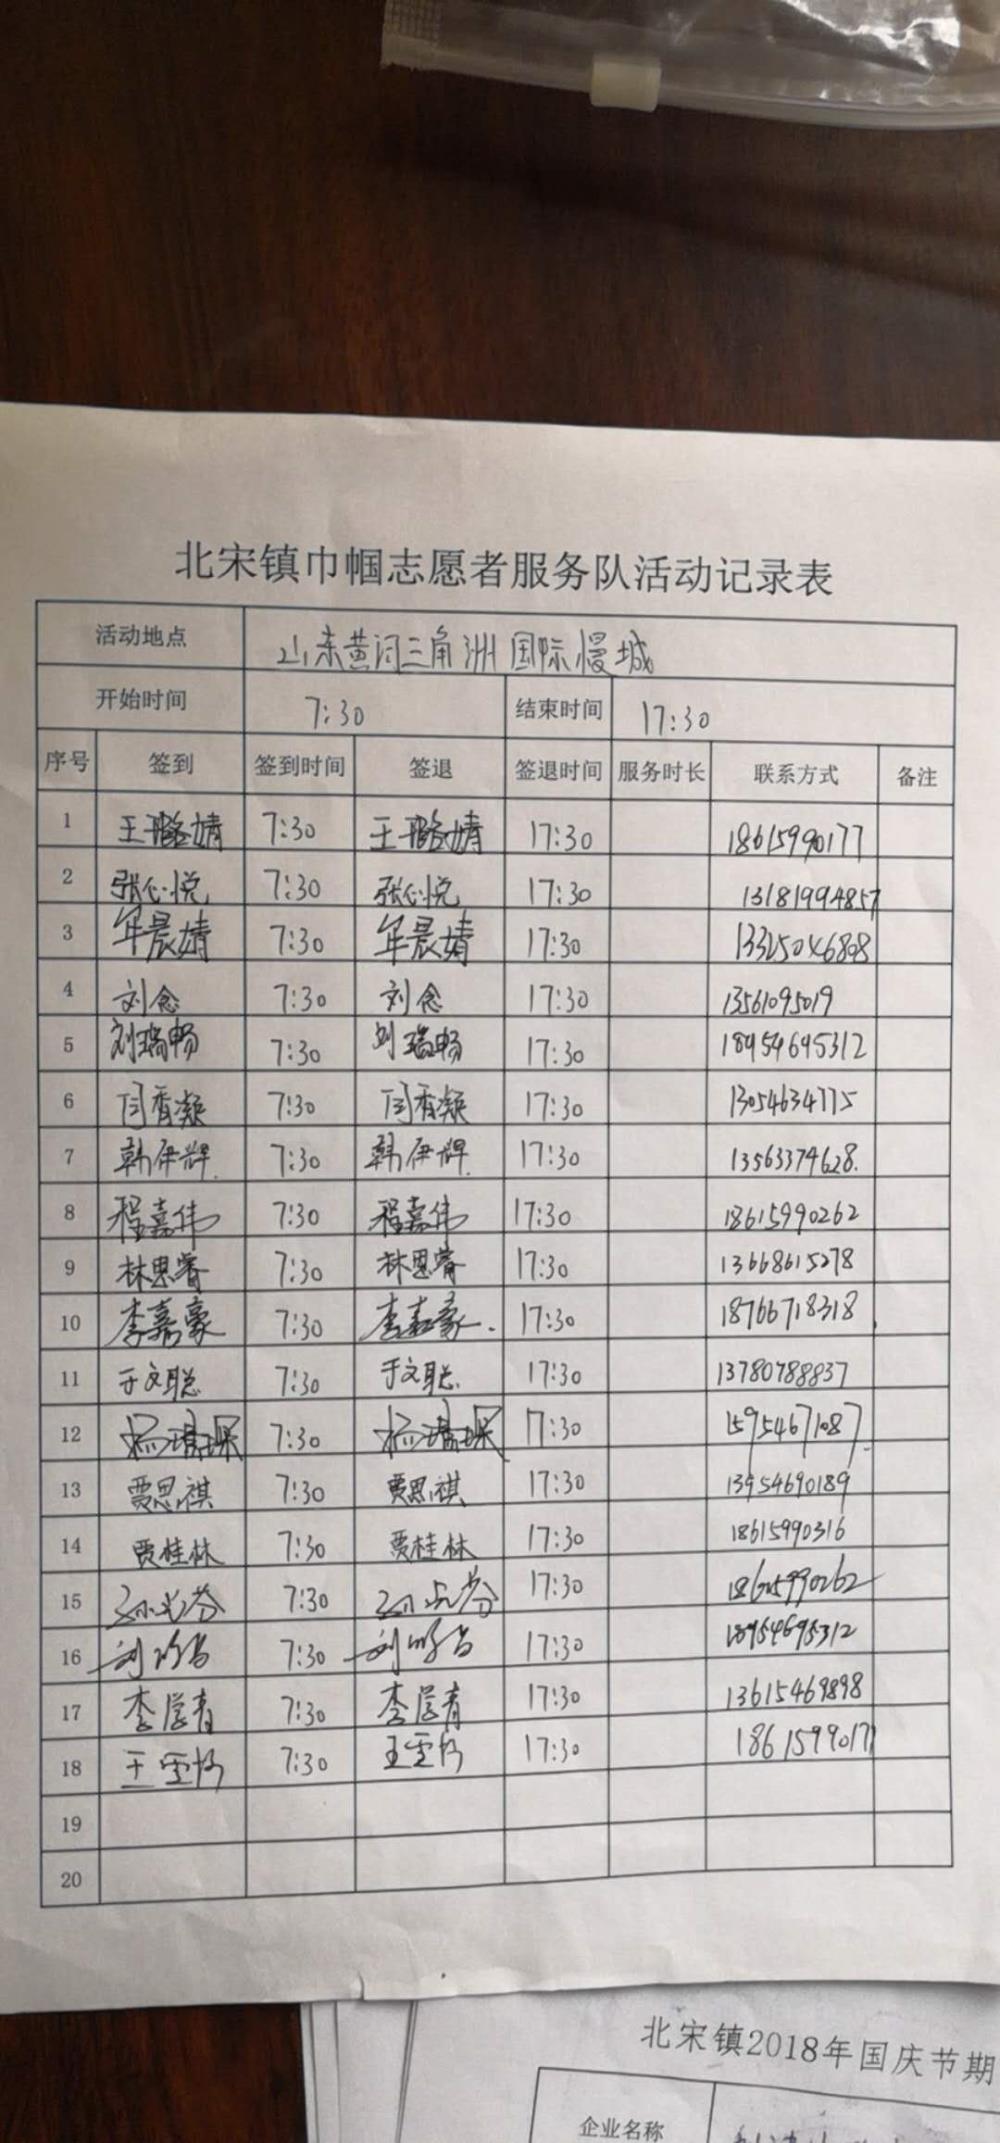 北宋镇巾帼志愿者服务队活动记录表
活动地点 山东黄河三角洲国际慢城
开始时间 7:30 结束时间 17:30
序号 签到 签到时间 签退 签退时间 服务时长 联系方式 备注
1 王璐婧 7:30 王璐婧 17:30 18615990177
2 张心悦 7:30 张心悦 17:30 13181994857
3 年晨婧 7:30 年晨婧 17:30 13325046808
4 刘念 7:30 刘念 17:30 13561095019
5 刘瑞畅 7:30 刘瑞畅 17:30 18954695312
6 闫香凝 7:30 闫香凝 17:30 13054634775
7 韩伊辉 7:30 韩伊辉 17:30 13563374628.
8 程嘉伟 7:30 程嘉伟 17:30 18615990262
9 林思睿 7:30 林思睿 17:30 13668615278
10 李嘉豪 7:30 李嘉豪. 17:30 18766718318
11 于文聪 7:30 于文聪 17:30 13780788837
12 7:30 17:30 15954671087
13 贾思祺 7:30 贾思祺 17:30 13954690189
14 贾桂林 7:30 贾桂林 17:30 18615990316
15 7:30 17:30 18615990262
16 7:30 17:30 18954695312
17 李学青 7:30 李学青 17:30 13615469898
18 7:30 17:30 1861599017
19
20
北宋镇2018年国庆节期
企业名称